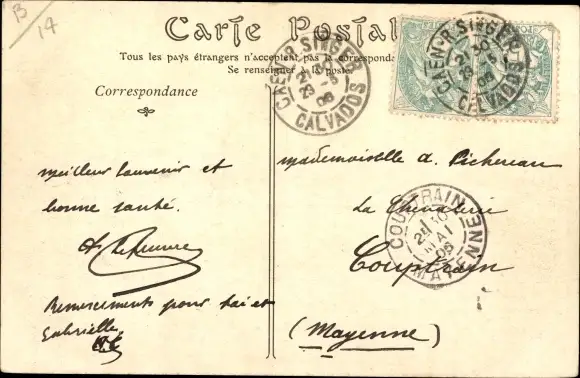 B
14
Carte Postale
Tous les pays étrangers n'acceptent pas la correspondance
Se renseigner à la poste
Correspondance
CAEN-R. SINGER
CALVADOS
CAEN-R. SINGER
CALVADOS
meilleur souvenir et
bonne santé.
Remerciements pour toi et
Gabrielle.
Mademoiselle A. Pichereau
La Chevalerie
Couptrain
(Mayenne)
COUPTRAIN
MAYENNE
MAI